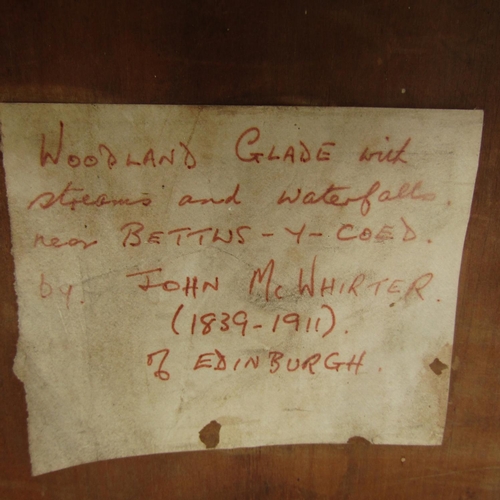 WOODLAND GLADE with
streams and waterfalls.
near BETTWS-Y-COED.
by. JOHN McWHIRTER.
(1839-1911).
of EDINBURGH.